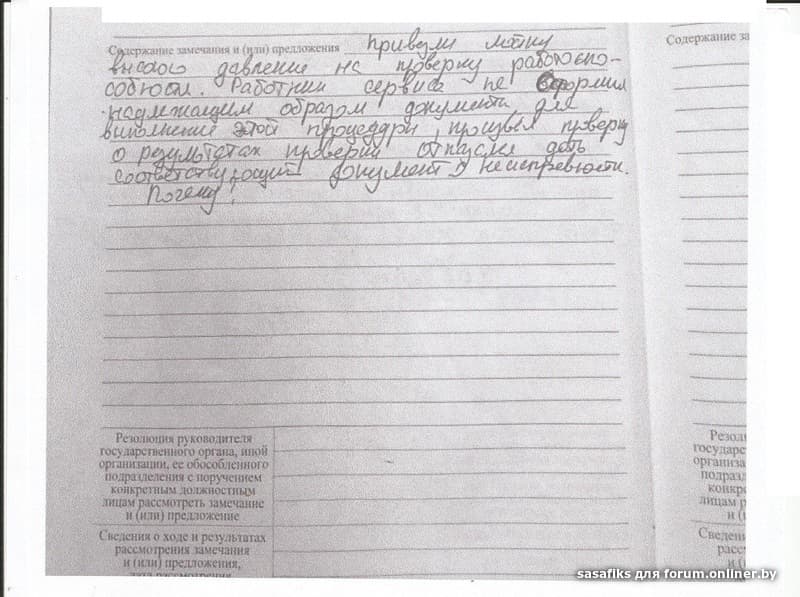 Содержание замечания и (или) предложения Привезли мойку
высокого давления на проверку работоспо-
собности. Работник сервиса не оформил
надлежащим образом документи для
выполнение этой процедуры, проверку
о результатах проверки дать
соответствующий документ о неисправности.
Почему?
Резолюция руководителя
государственного органа, иной
организации, ее обособленного
подразделения с поручением
конкретным должностным
лицам рассмотреть замечание
и (или) предложение
Сведения о ходе и результатах
рассмотрения замечания
и (или) предложения,
дата рассмотрения
Содержание за
Резол
государс
организа
подразд
конкре
лицам р
и (
Сведен
расс
и (
sasafiks для forum.onliner.by